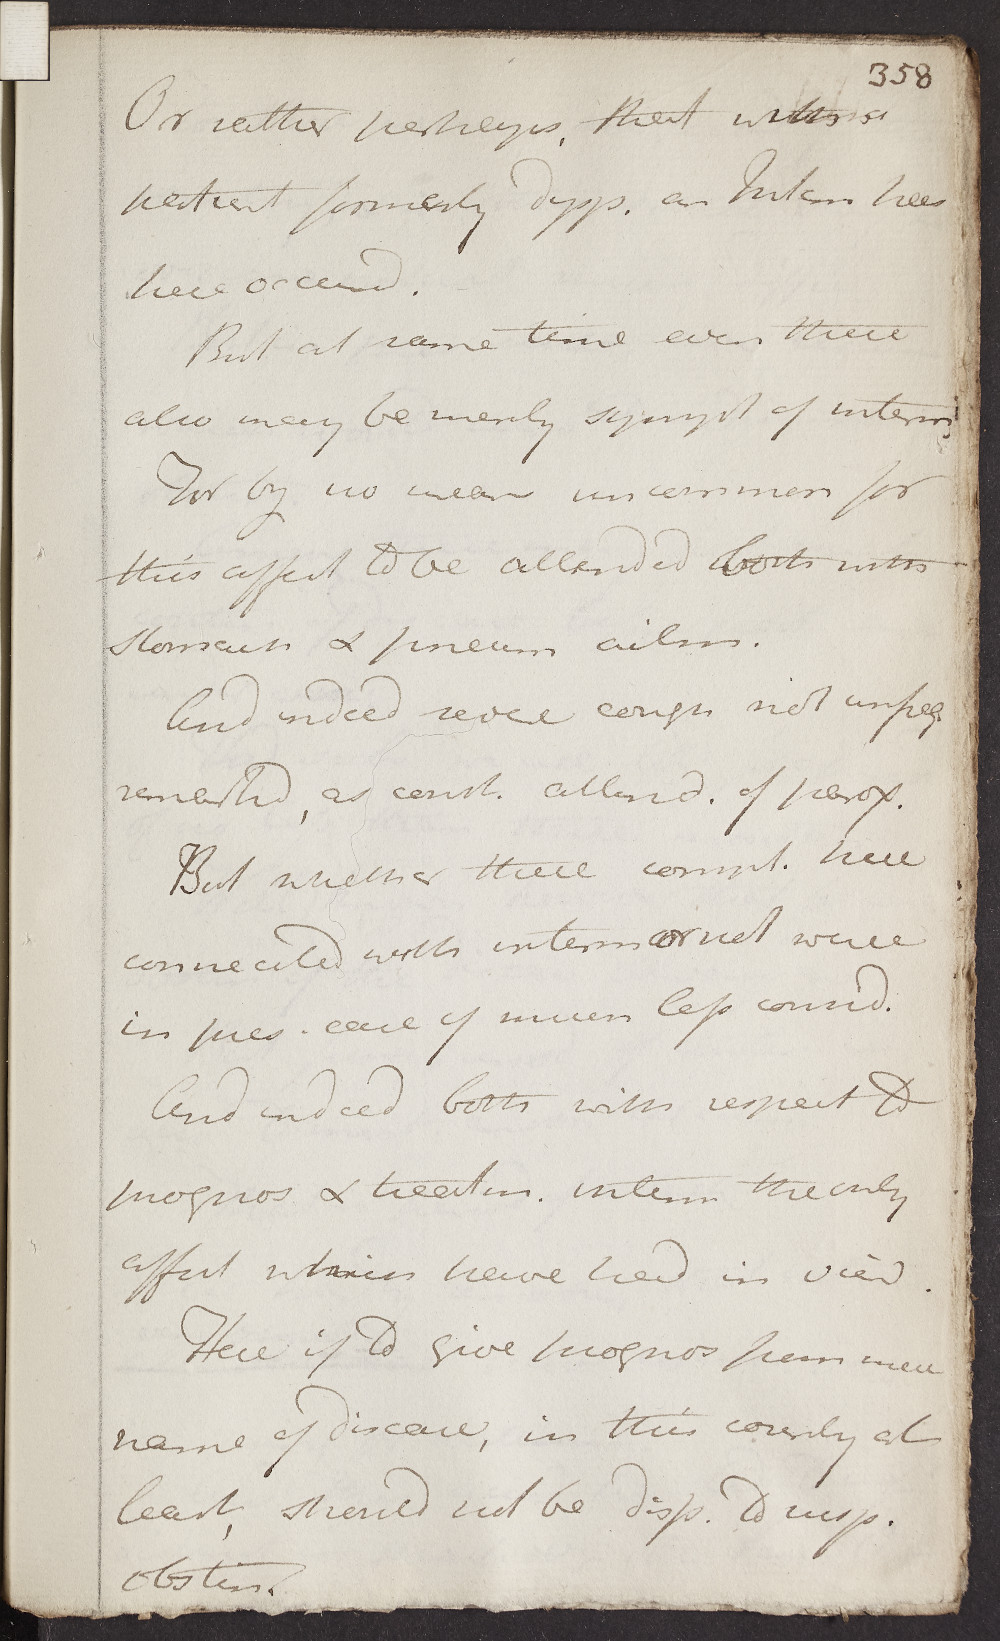 358
Or rather perhaps, that with a
patient formerly dysp. an Interm has
here occurred.
But at same time even these
also may be merely sympt of interm
For by no mean uncommon for
this affect to be attended both with
stomach & pneum ailm.
And indeed severe cough not unfreq.
remarked, as const. attend. of parox.
But whether these compl. here
connected with interm or not were
in pres. case of much less consid.
And indeed both with respect to
prognos & treatm. interm the only
affect which have had in view.
Here if to give prognos from mere
name of disease, in this country at
least, should not be disp. to susp.
obstin.